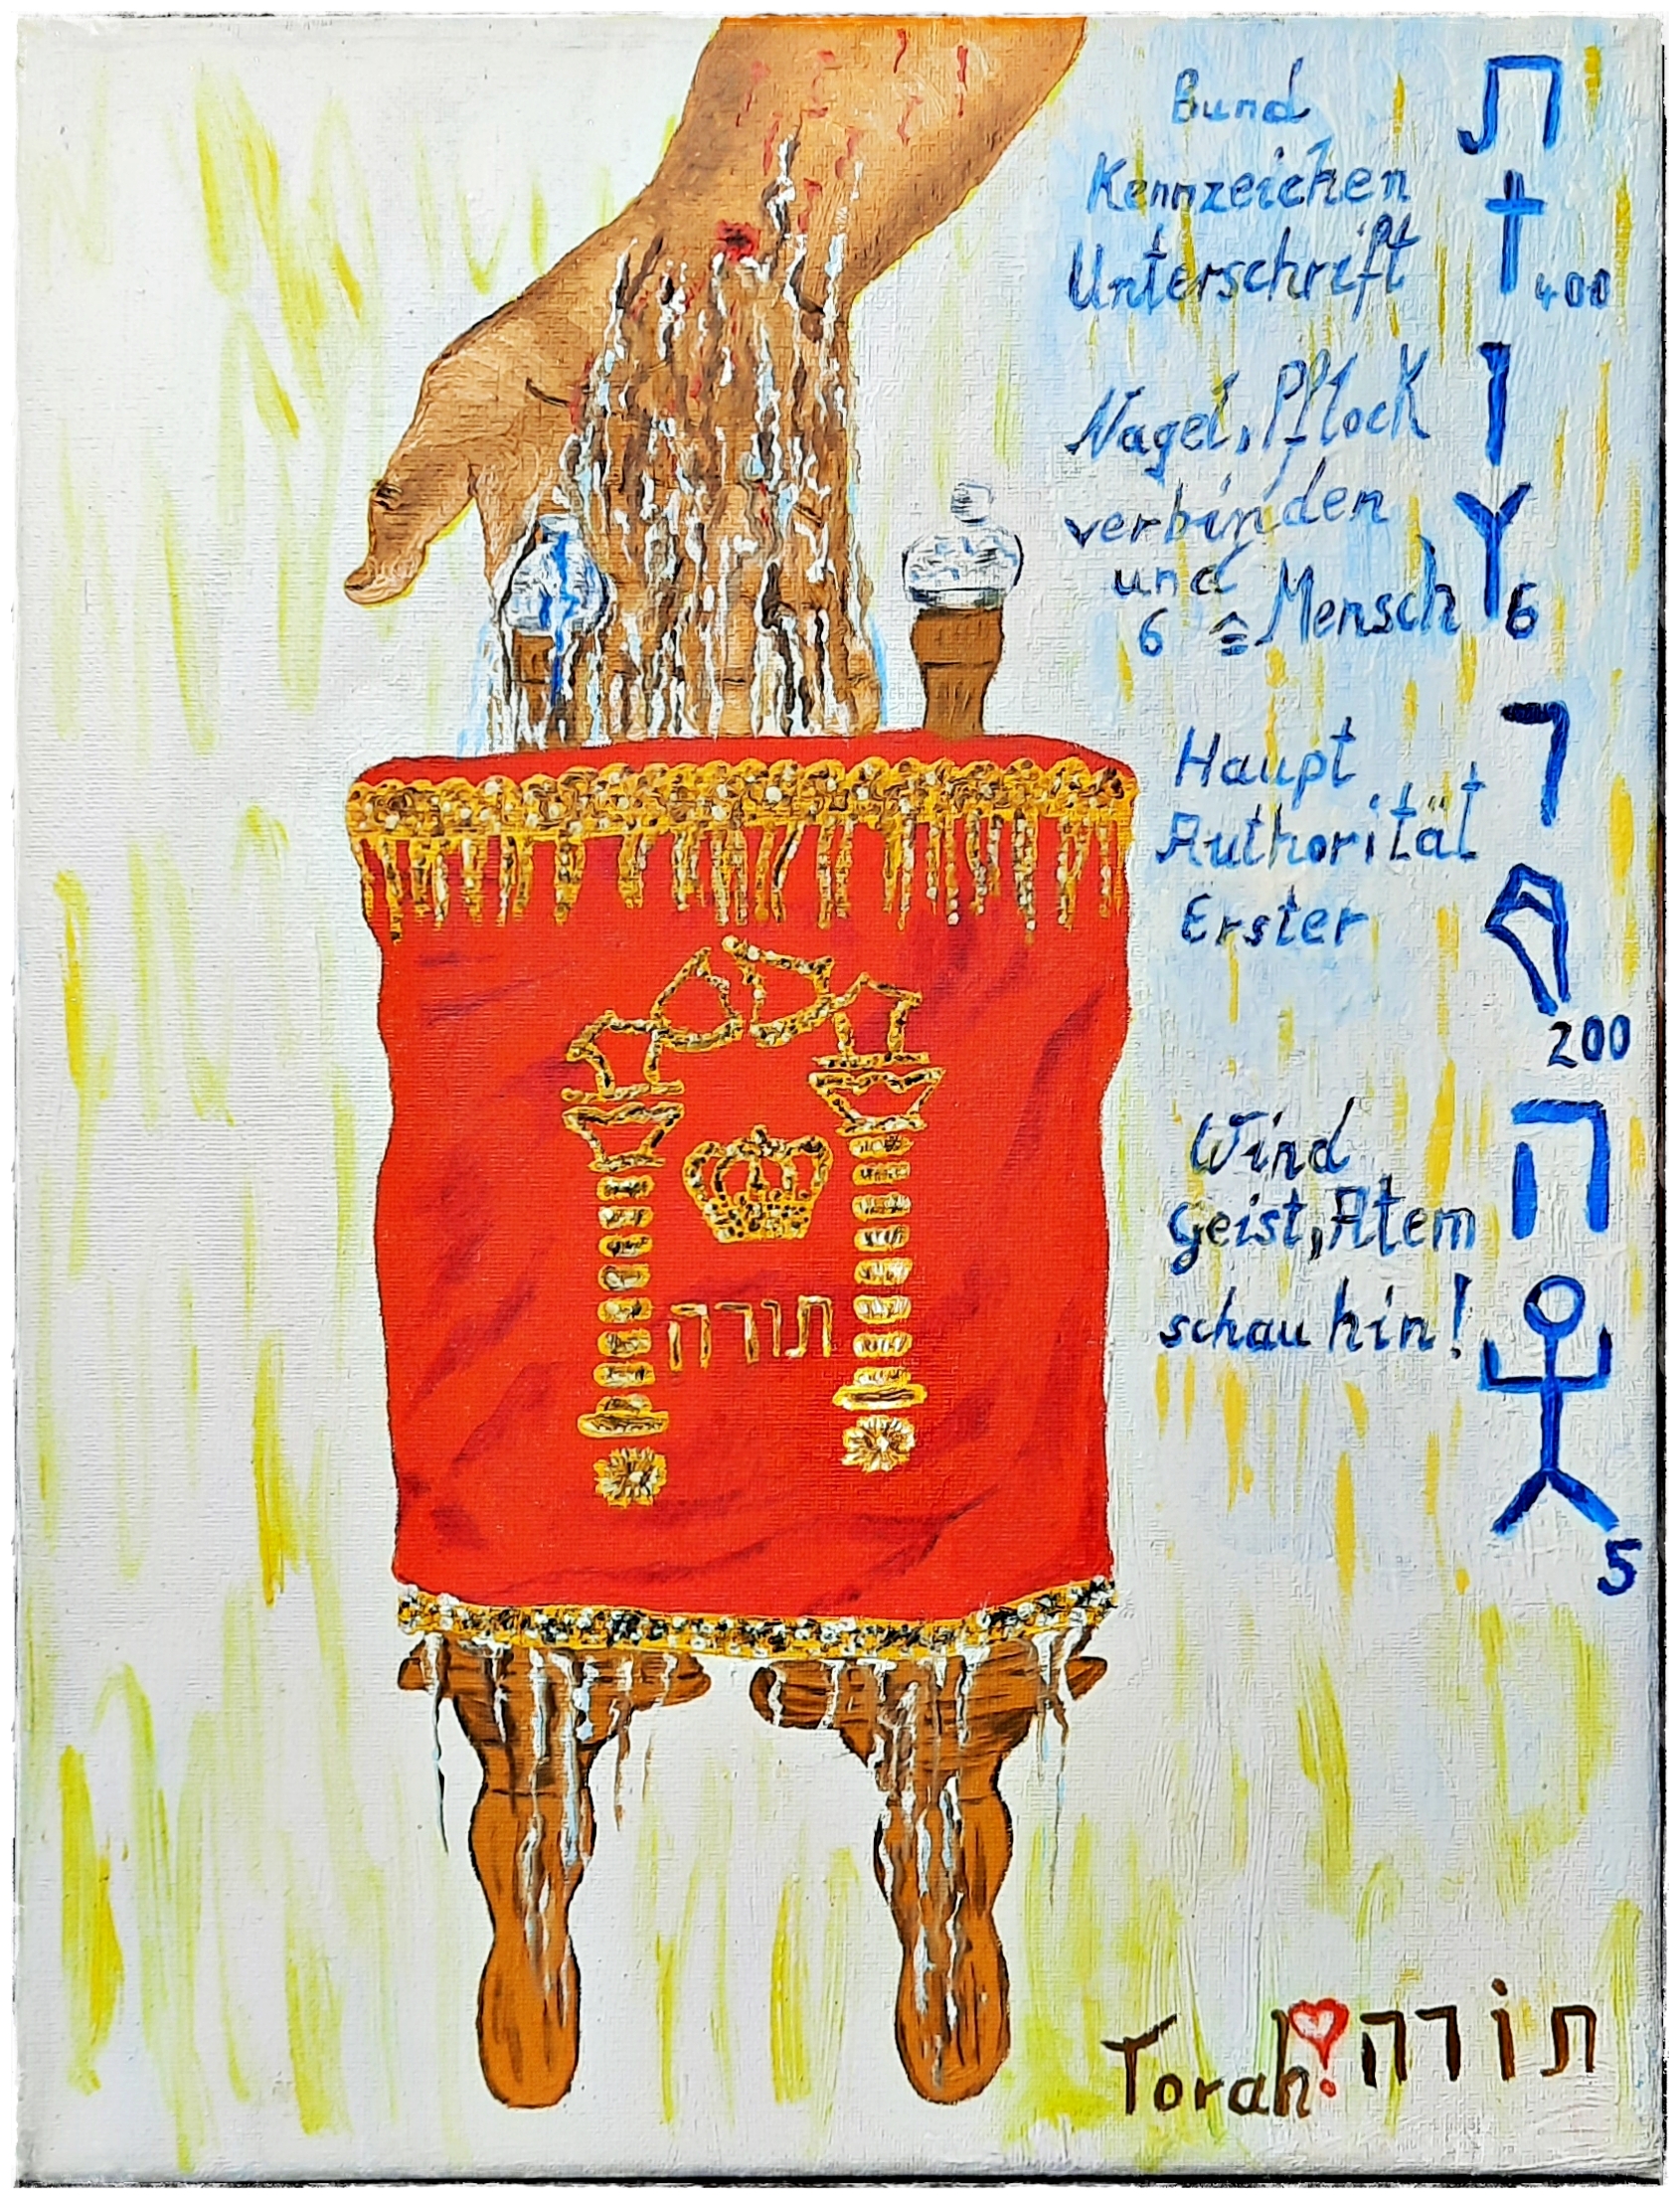 Bund ת
Kennzeichen
Unterschrift 400
Nagel, Pflock ו
verbinden
und
6 ≙ Mensch 6
Haupt ר
Authorität
Erster
200
Wind ה
geist, Atem
schau hin!
5
תורה
Torah! תורה